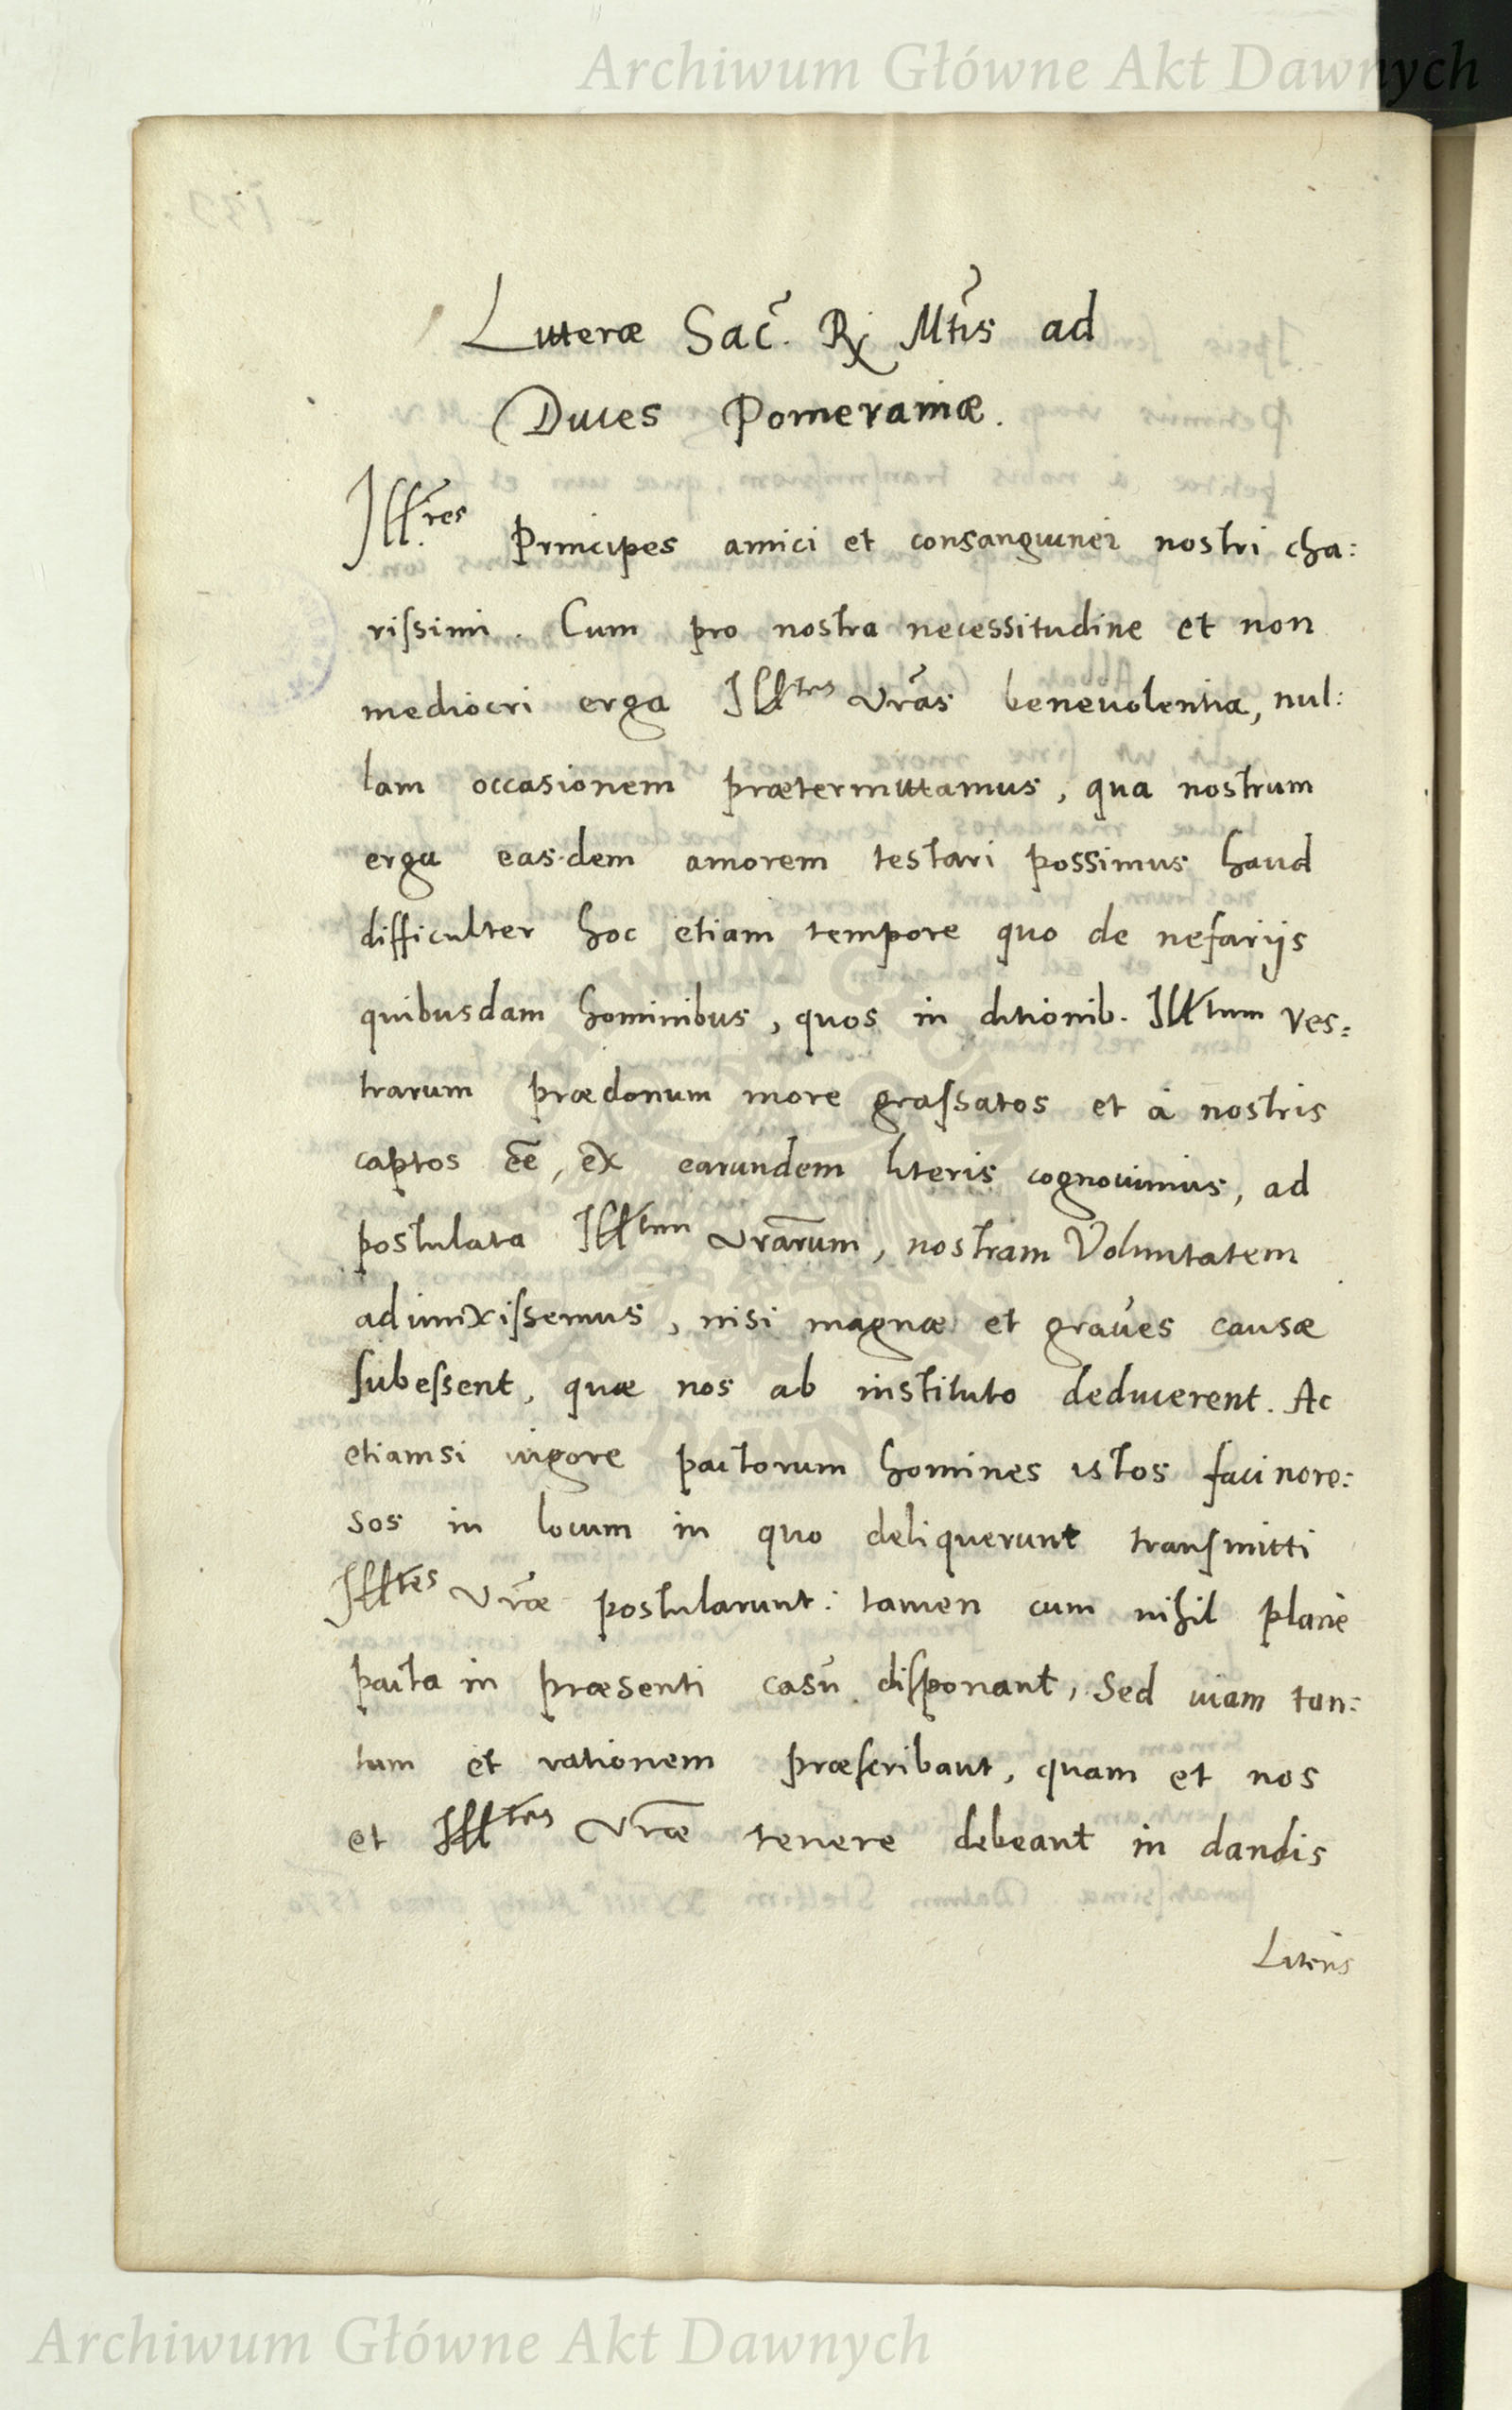 Archiwum Główne Akt Dawnych
Litteræ Sac. R. Mtis ad
Duces Pomeraniæ.
Illres Principes amici et consanguinei nostri cha:
rissimi. Cum pro nostra necessitudine et non
mediocri erga Illtes vras beneuolentia, nul:
lam occasionem prætermittamus, qua nostrum
erga easdem amorem testari possimus haud
difficulter hoc etiam tempore quo de nefarijs
quibusdam hominibus, quos in ditionib. Illtum Ves=
trarum prædonum more grassatos et à nostris
captos eē, ex earundem literis cognouimus, ad
postulata Illtum vrarum, nostram Voluntatem
adiunxissemus, nisi magnæ et graues causæ
subessent, quæ nos ab instituto deducerent. Ac
etiamsi uigore pactorum homines istos facinoro:
sos in locum in quo deliquerunt transmitti
Illtes vræ postularunt: tamen cum nihil plane
pacta in præsenti casu disponant, Sed uiam tan:
tum et rationem præscribant, quam et nos
et Illtes vræ tenere debeant in dandis
Literis
Archiwum Główne Akt Dawnych